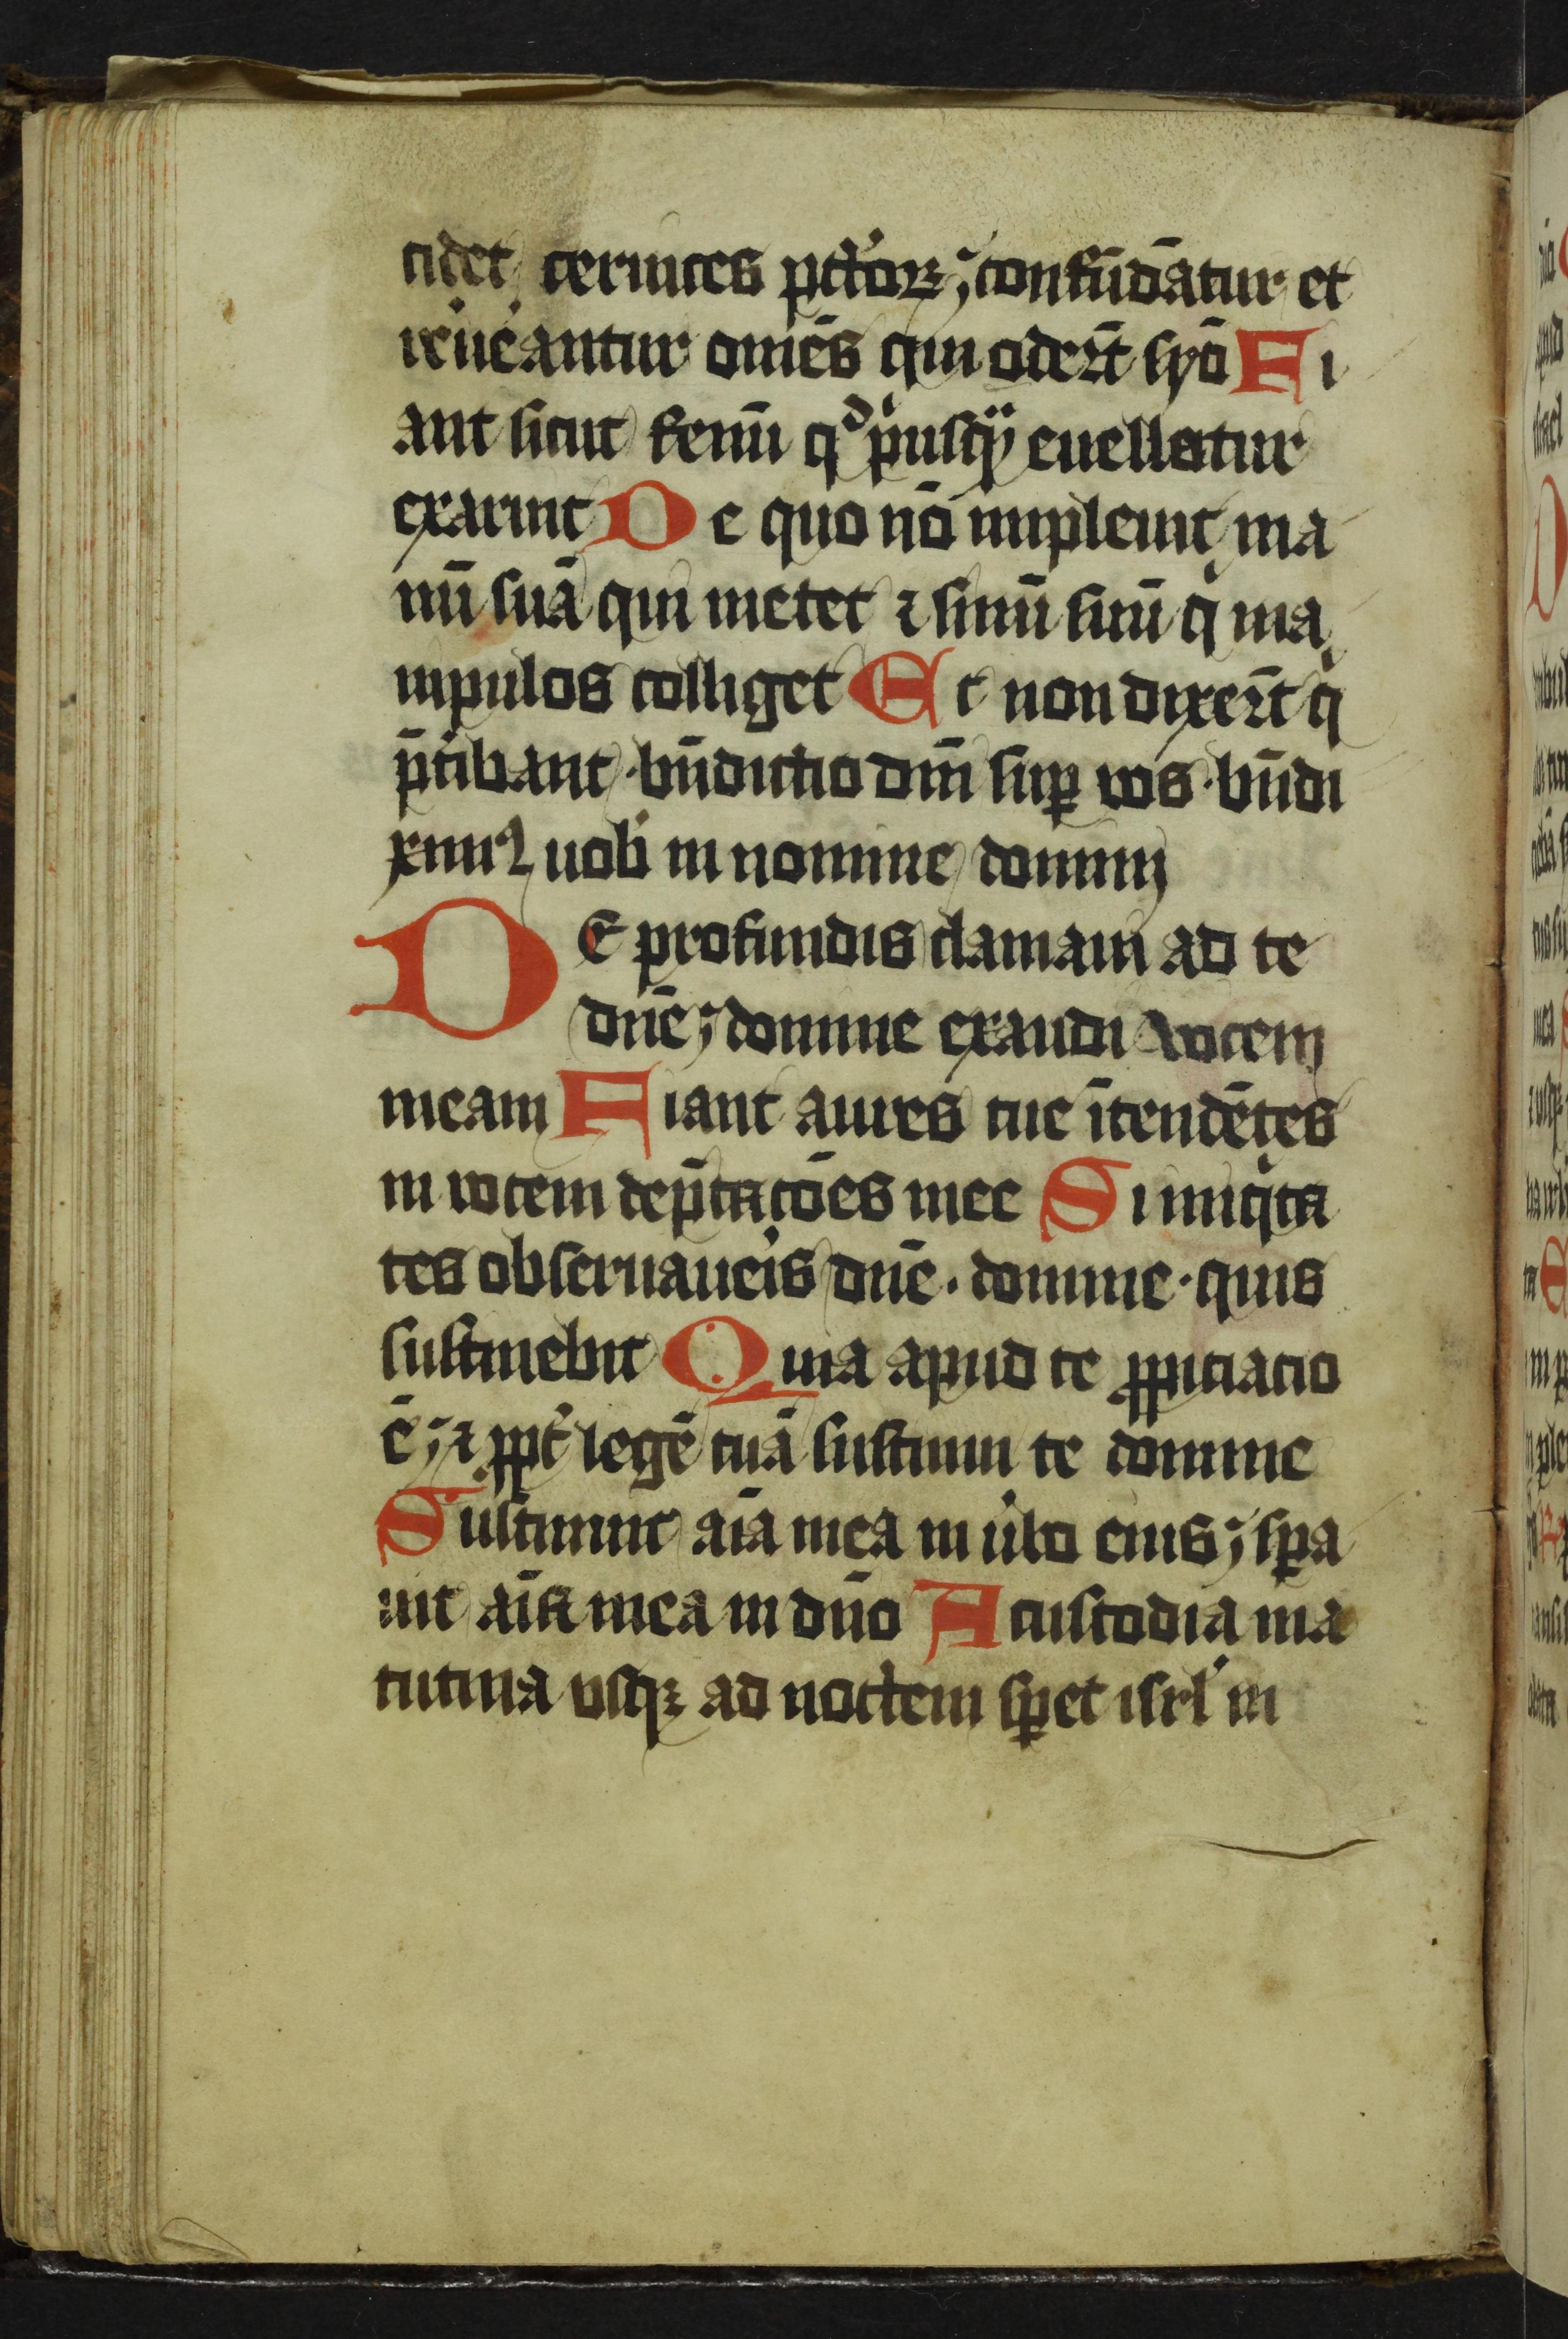 cidet ceruices pctoꝝ; confūdātur et
reueantur omēs qui oderūt syō Fi
ant sicut fenū qd pusqȝ euellatur
exaruit De quo nō impleuit ma
nū suā qui metet ⁊ sinū suū q̇ ma
nipulos colliget Et non dixerūt q̇
p̄tibant · bn̄dictio dn̄i suꝑ vos · bn̄di
ximꝰ uob in nomine domini
DE profundis clamaui ad te
dn̄e; domine exaudi vocem
meam Fiant aures tue ītendētes
in vocem dep̄catōēs mee Si iniq̇ta
tes obseruaueis dn̄e · domine · quis
sustinebit Quia apud te ꝓpiciacio
ē; ⁊ ꝓpt legē tuā sustinui te domine
Sustinuit aīa mea in ūbo eius; sꝑa
uit aīa mea in dn̄o A custodia ma
tutina vsqꝫ ad noctem sꝑet isrl in